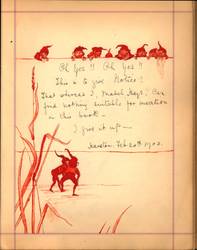 Oh Yes!! Oh Yes!!
This is to give Notice!
That whereas I, Mabel Hays, can
find nothing suitable for insertion
in this book -
I give it up -
Feb 20th 1902.